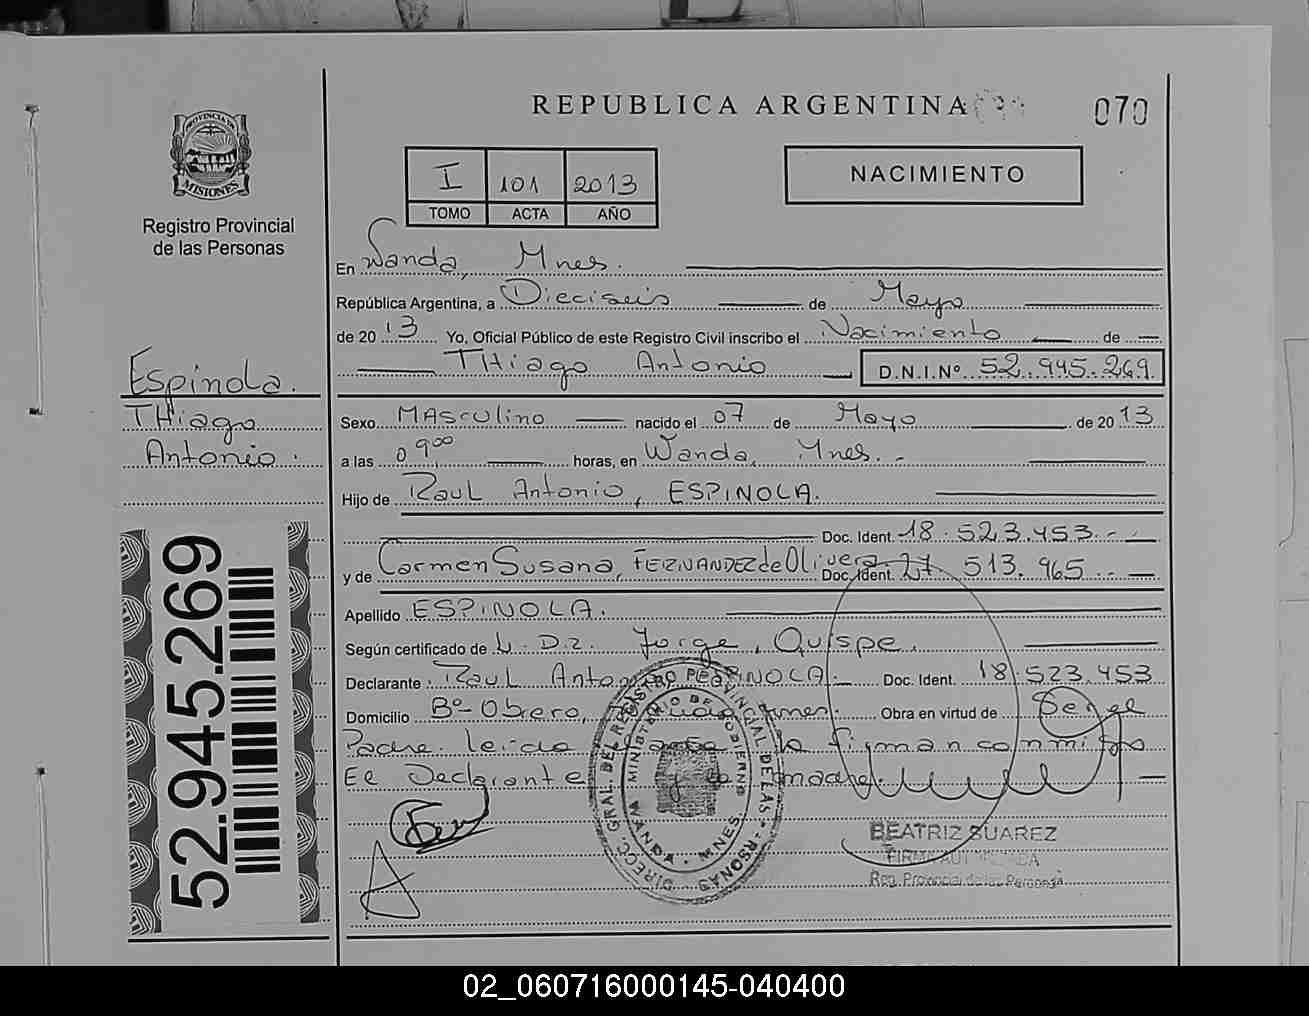 REPUBLICA ARGENTINA
070
PROVINCIA DE
MISIONES
Registro Provincial
de las Personas
I 101 2013
TOMO ACTA AÑO
NACIMIENTO
En Wanda, Mnes.
República Argentina, a Dieciseis de Mayo
de 2013 Yo, Oficial Público de este Registro Civil inscribo el Nacimiento de
THiago Antonio D.N.I.Nº 52.945.269
Espinola.
THiago
Antonio.
Sexo MAsculino nacido el 07 de Mayo de 2013
a las 09 00 horas, en Wanda, Mnes.-
Hijo de Raul Antonio, ESPINOLA.
Doc. Ident. 18.523.453.-
y de Carmen Susana, FERNANDEZ de Olivera Doc. Ident. 27 513.965.-
Apellido ESPINOLA.
Según certificado de Jorge, Quispe.
Declarante Raul Antonio ESPINOLA Doc. Ident. 18.523.453
Domicilio Bº Obrero, Mnes. Obra en virtud de Ser el
Padre. leida la firman conmigo
El Declarante y la madre.
52.945.269
DIRECC. GRAL. DEL REGISTRO PROVINCIAL DE LAS PERSONAS
MINISTERIO DE GOBIERNO
WANDA - MNES.
BEATRIZ SUAREZ
FIRMA AUTORIZADA
Reg. Provincial de las Personas
02_060716000145-040400